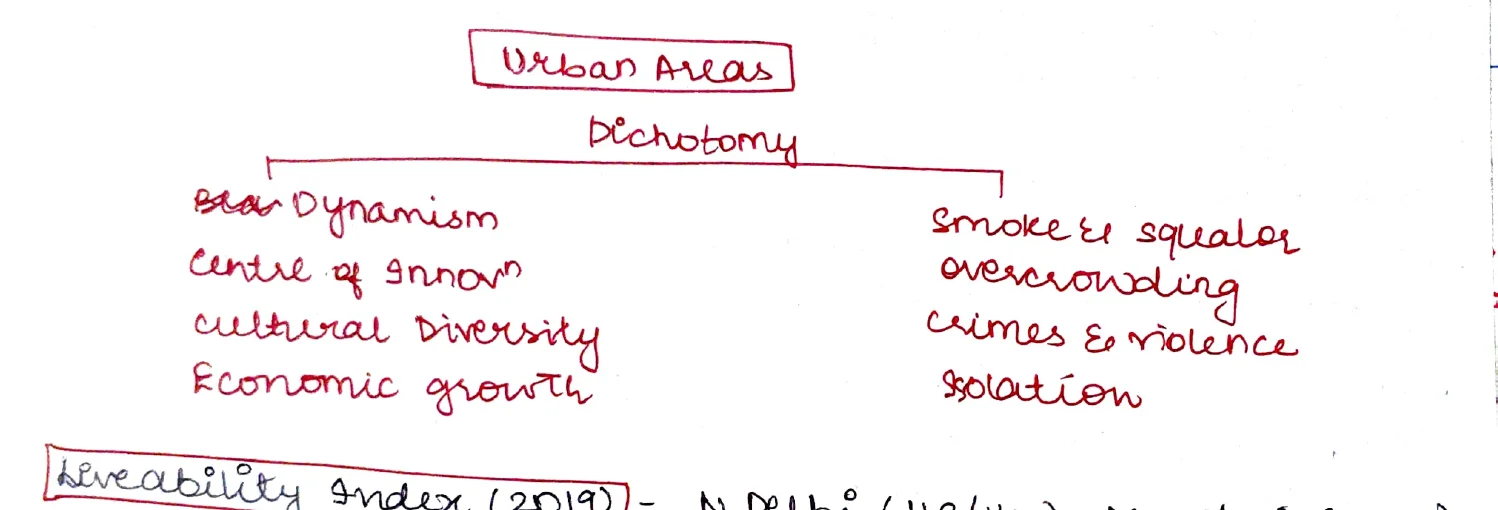 Urban Areas
Dichotomy
Dynamism
Centre of Innovⁿ
Cultural Diversity
Economic growth
Smoke & squalor
overcrowding
Crimes & violence
Isolation
Liveability Index (2019) - N Delhi